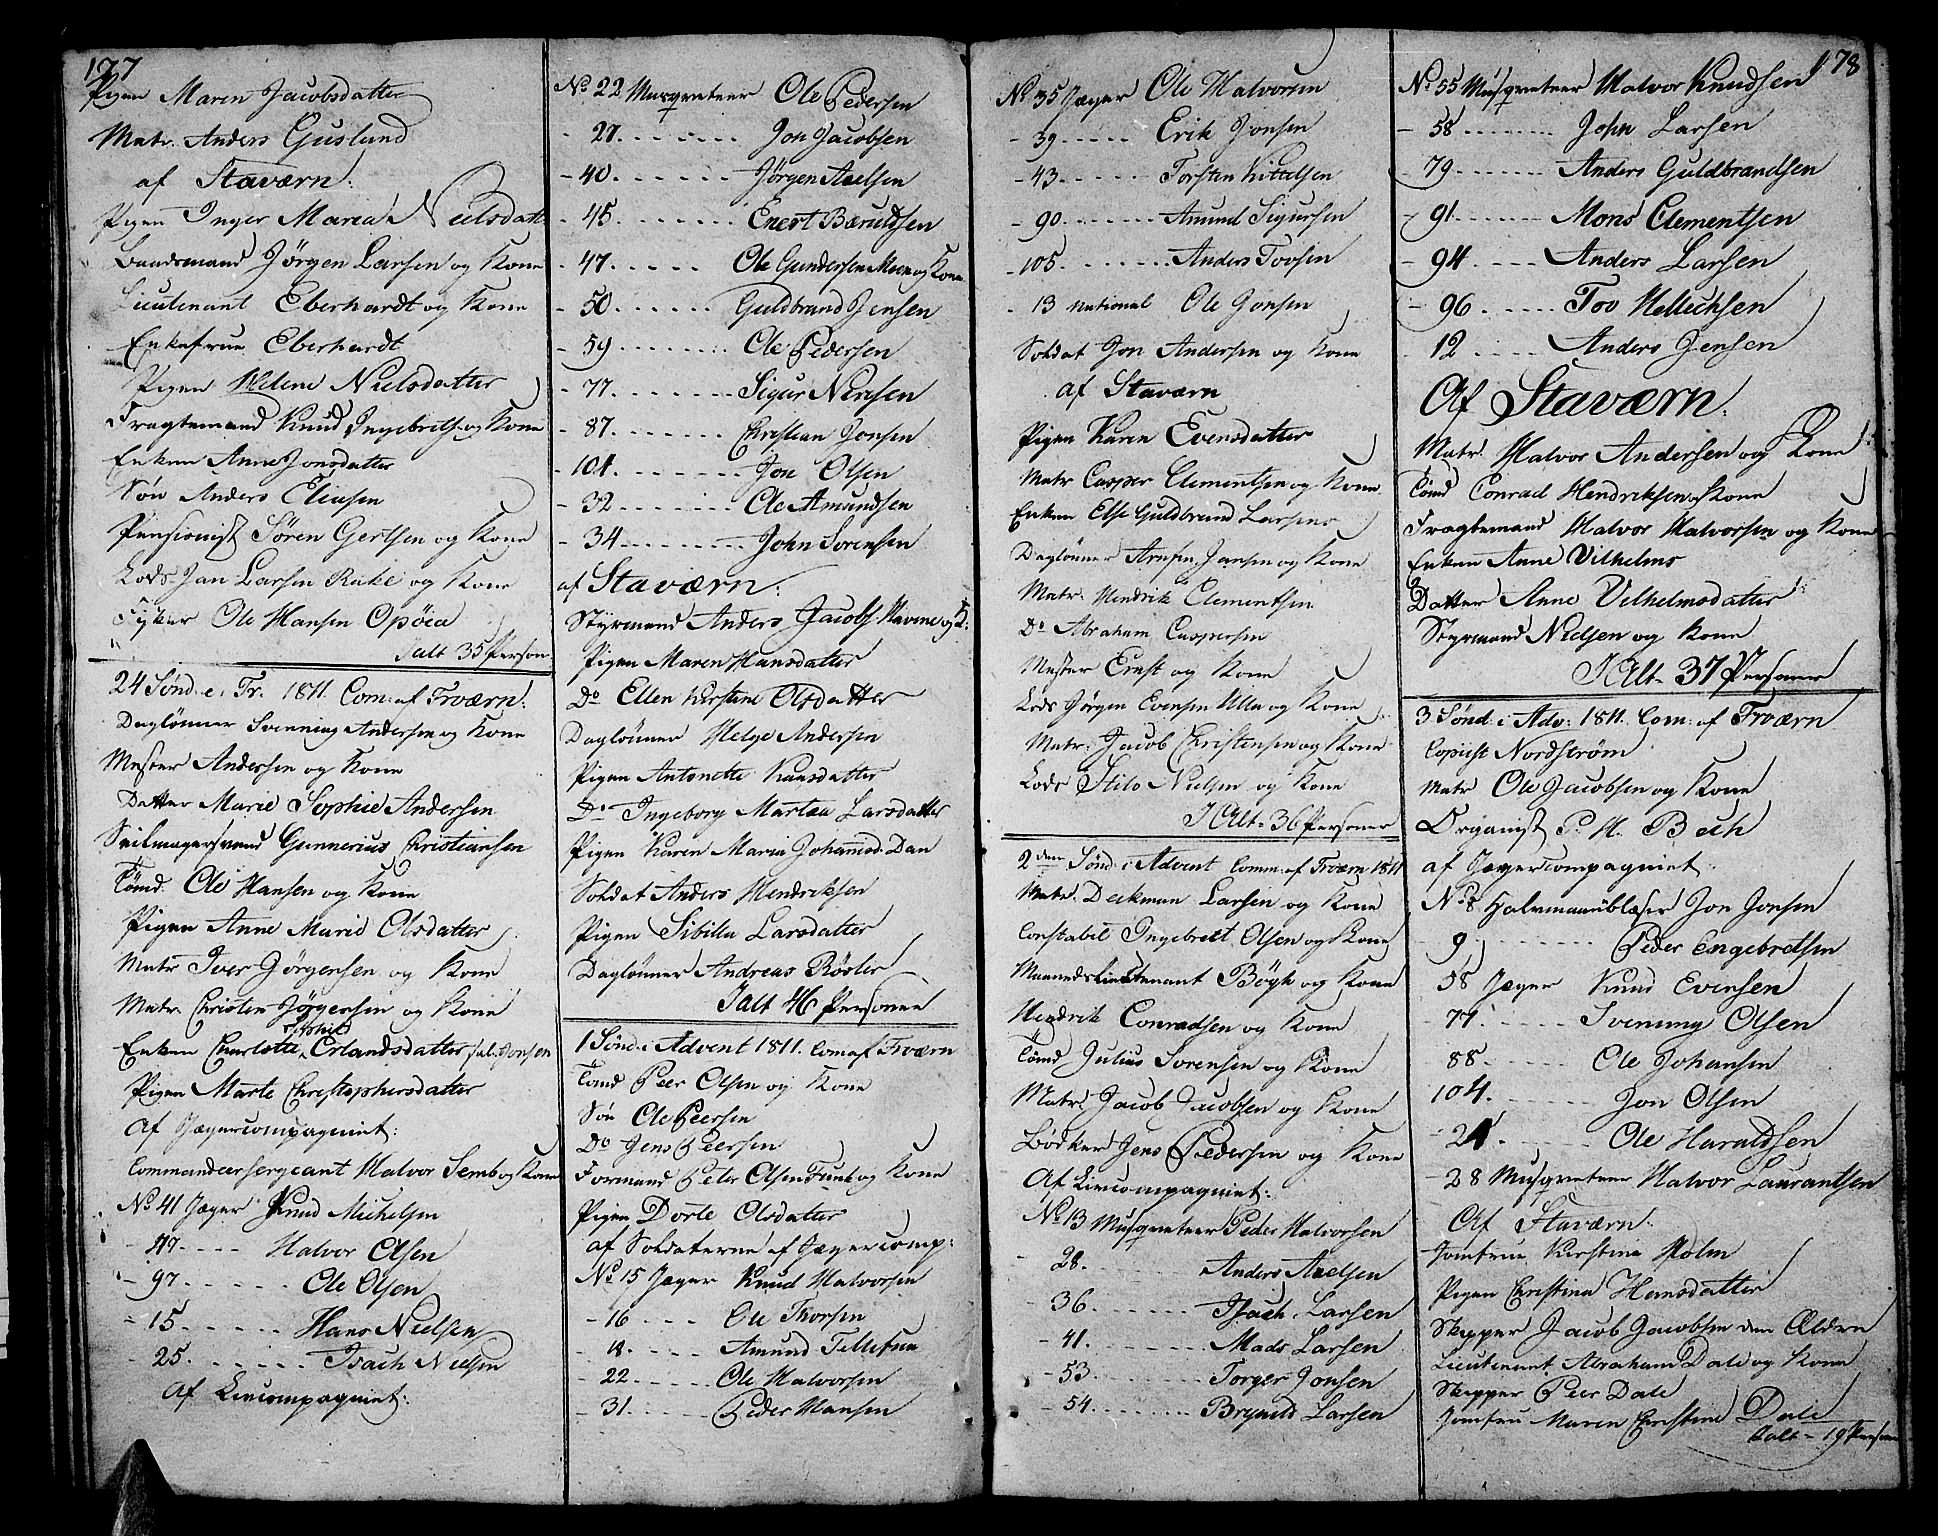 177
Pigen Maren Jacobsdatter
Matr. Anders Guslund
af Staværn:
Pigen Inger Maria Nielsdatt
Baadsmand Jørgen Larsen og Kone
Lieutenant Eberhardt og Kone
Enkefrue Eberhardt
Pigen Helene Nielsdatter
Fragtemand Knud Ingebrets: og Kone
Enken Anne Jonsdatter
Søn Anders Eliasen
Pensionist Søren Gertsen og Kone
Lods Jan Larsen Rake og Kone
Fysker Ole Hansen Opøien
Ialt 35 Person
24 Sønd: e. Tr. 1811. Com: af Frværn:
Daglønner Svenning Andersen og Kone
Mester Andersen og Kone
Datter Marie Sophie Andersen
Seilmagersvend Gunnerius Christiansen
Tømd. Ole Hansen og Kone
Pigen Anne Marie Olsdatter
Matr Iver Jørgensen og Kone
Matr. Christen Jørgensen og Kone
Enken Charlotte Sophie Erlandsdatter sal: Jonsen
Pigen Marte Christophersdatter
Af Jægercompagniet:
Commandeersergeant Halvor Semb og Kone
No. 41 Jæger Knud Michelsen
- 47 .... Halvor Olsen
- 97 ...... Ole Olsen
- 15 ...... Hans Nielsen
- 25 ....... Isach Nielsen
Af Livcompagniet:
No. 22 Musqveteer Ole Pedersen
- 27 ....... Jon Jacobsen
- 40 ...... Jørgen Axelsen
- 45 ...... Enert Bærulfsen
- 47 ..... Ole Gundersen Moen og Kone
- 50 ...... Guldbrand Jensen
- 59 ....... Ole Pedersen
- 77 ...... Sigur Nirisen
- 87 ....... Christian Jonsen
- 101 ...... Jon Olsen
- 32 ....... Ole Amundsen
- 34 ....... John Sorensen
af Staværn:
Styrmand Anders Jacobs Havine og K:
Pigen Maren Hansdatter
Do Ellen Kirstine Olsdatter
Daglønner Helge Andersen
Pigen Antonette Hansdatter
Do Ingeborg Martha Larsdatter
Pigen Karen Maria Johannisd: Dan
Soldat Anders Hendriksen
Pigen Sibilla Larsdatter
Daglønner Andreas Røsler
Ialt 46 Persone
1 Sønd: i Advent 1811. Com af Frværn
Tømd Peer Olsen og Kone
Søn Ole Peersen
Do Jens Peersen
Formand Peter Olsen Funk og Kone
Pigen Dorte Olsdatter
af Soldaterne af Jægercomp:
No. 15 Jæger Knud Halvorsen
- 16 .... Ole Thorsen
- 18 ..... Amund Tellefsen
- 22 ..... Ole Halvorsen
- 31 ...... Peder Hansen
No. 35 Jæger Ole Halvorsen
- 39 ..... Erik Jonsen
- 43 ...... Torsten Kittelsen
- 90 ....... Amund Sigursen
- 105 ....... Anders Tovsen
- 13 national Ole Jonsen
Soldat Jon Andersen og Kone
af Staværn
Pigen Karen Evensdatter
Matr Casper Clementsen og Kone
Enken Else Guldbrand Larsens
Daglønner Arnsen Jansen og Kone
Matr. Hendrik Clementsen
Do Abraham Caspersen
Mester Ernst og Kone
Lods Jørgen Evensen Ulla og Kone
Matr. Jacob Christensen og Kone
Lods Stilo Nielsen og Kone
I Alt - 36 Personer
2den Sønd: i Advent Comm: af Frværn 1811
Matr. Deckman Larsen og Kone
Constabel Ingebret Olsen og Kone
Maanedslieutenant Bøgh og Kone
Hendrik Conradsen og Kone
Tømd Julius Sorensen og Kone
Matr. Jacob Jacobsen og Kone
Bødker Jens Pedersen og Kone
Af Livcompagniet:
No. 13 Musqveteer Peder Halvorsen
- 28 ....... Anders Axelsen
- 36 ....... Isach Larsen
- 41 ....... Mads Larsen
- 53 ....... Torger Jonsen
- 54 ....... Brynild Larsen
178
No 55 Musqveteer Halvor Knudsen
- 58 ....... John Larsen
- 79 ...... Anders Guldbrandsen
- 91 ...... Mons Clementsen
- 94 ..... Anders Larsen
- 96 ..... Tov Hellechsen
- 12 .... Anders Jensen
Af Staværn:
Matr. Halvor Andersen og Kone
Tømd Conrad Hendriksen og Kone
Fragtemand Halvor Halvorsen og Kone
Enken Anne Vilhelms
Datter Anne Vilhelmsdatter
Styrmand Nielsen og Kone
I Alt - 37 Personer
3 Sønd: i Adv: 1811. Com: af Frværn
Copiist Nordstrøm
Matr Ole Jacobsen og Kone
Organist P. H. Bech
af Jægercompagniet:
No 8 Halvmaanblæser Jon Jonsen
- 9 ....... Peder Engebretsen
58 Jæger Knud Evensen
- 77 ..... Svennung Olsen
88 ...... Ole Johansen
104 ...... Jon Olsen
- 21 ..... Ole Haraldsen
- 28 Musqveteer Halvor Laurantsen
Af Staværn.
Jomfrue Kirstina Holm
Pigen Christina Hansdatter
Skipper Jacob Jacobsen den Ældre
Lieutenant Abraham Dale og Kone
Skipper Peer Dale
Jomfru Maren Christine Dale
Ialt - 19 Person